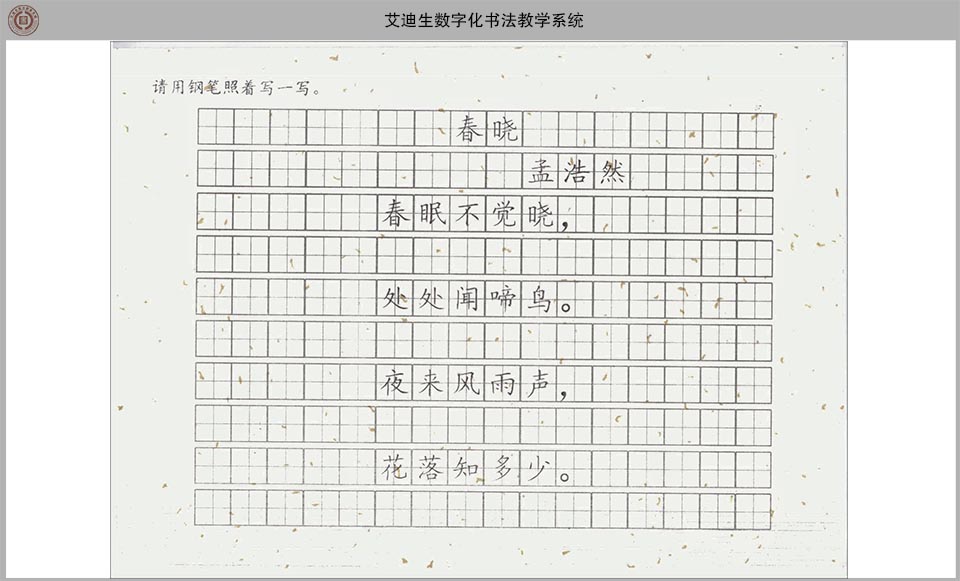 艾迪生数字化书法教学系统
请用钢笔照着写一写。
春晓
孟浩然
春眠不觉晓，
处处闻啼鸟。
夜来风雨声，
花落知多少。